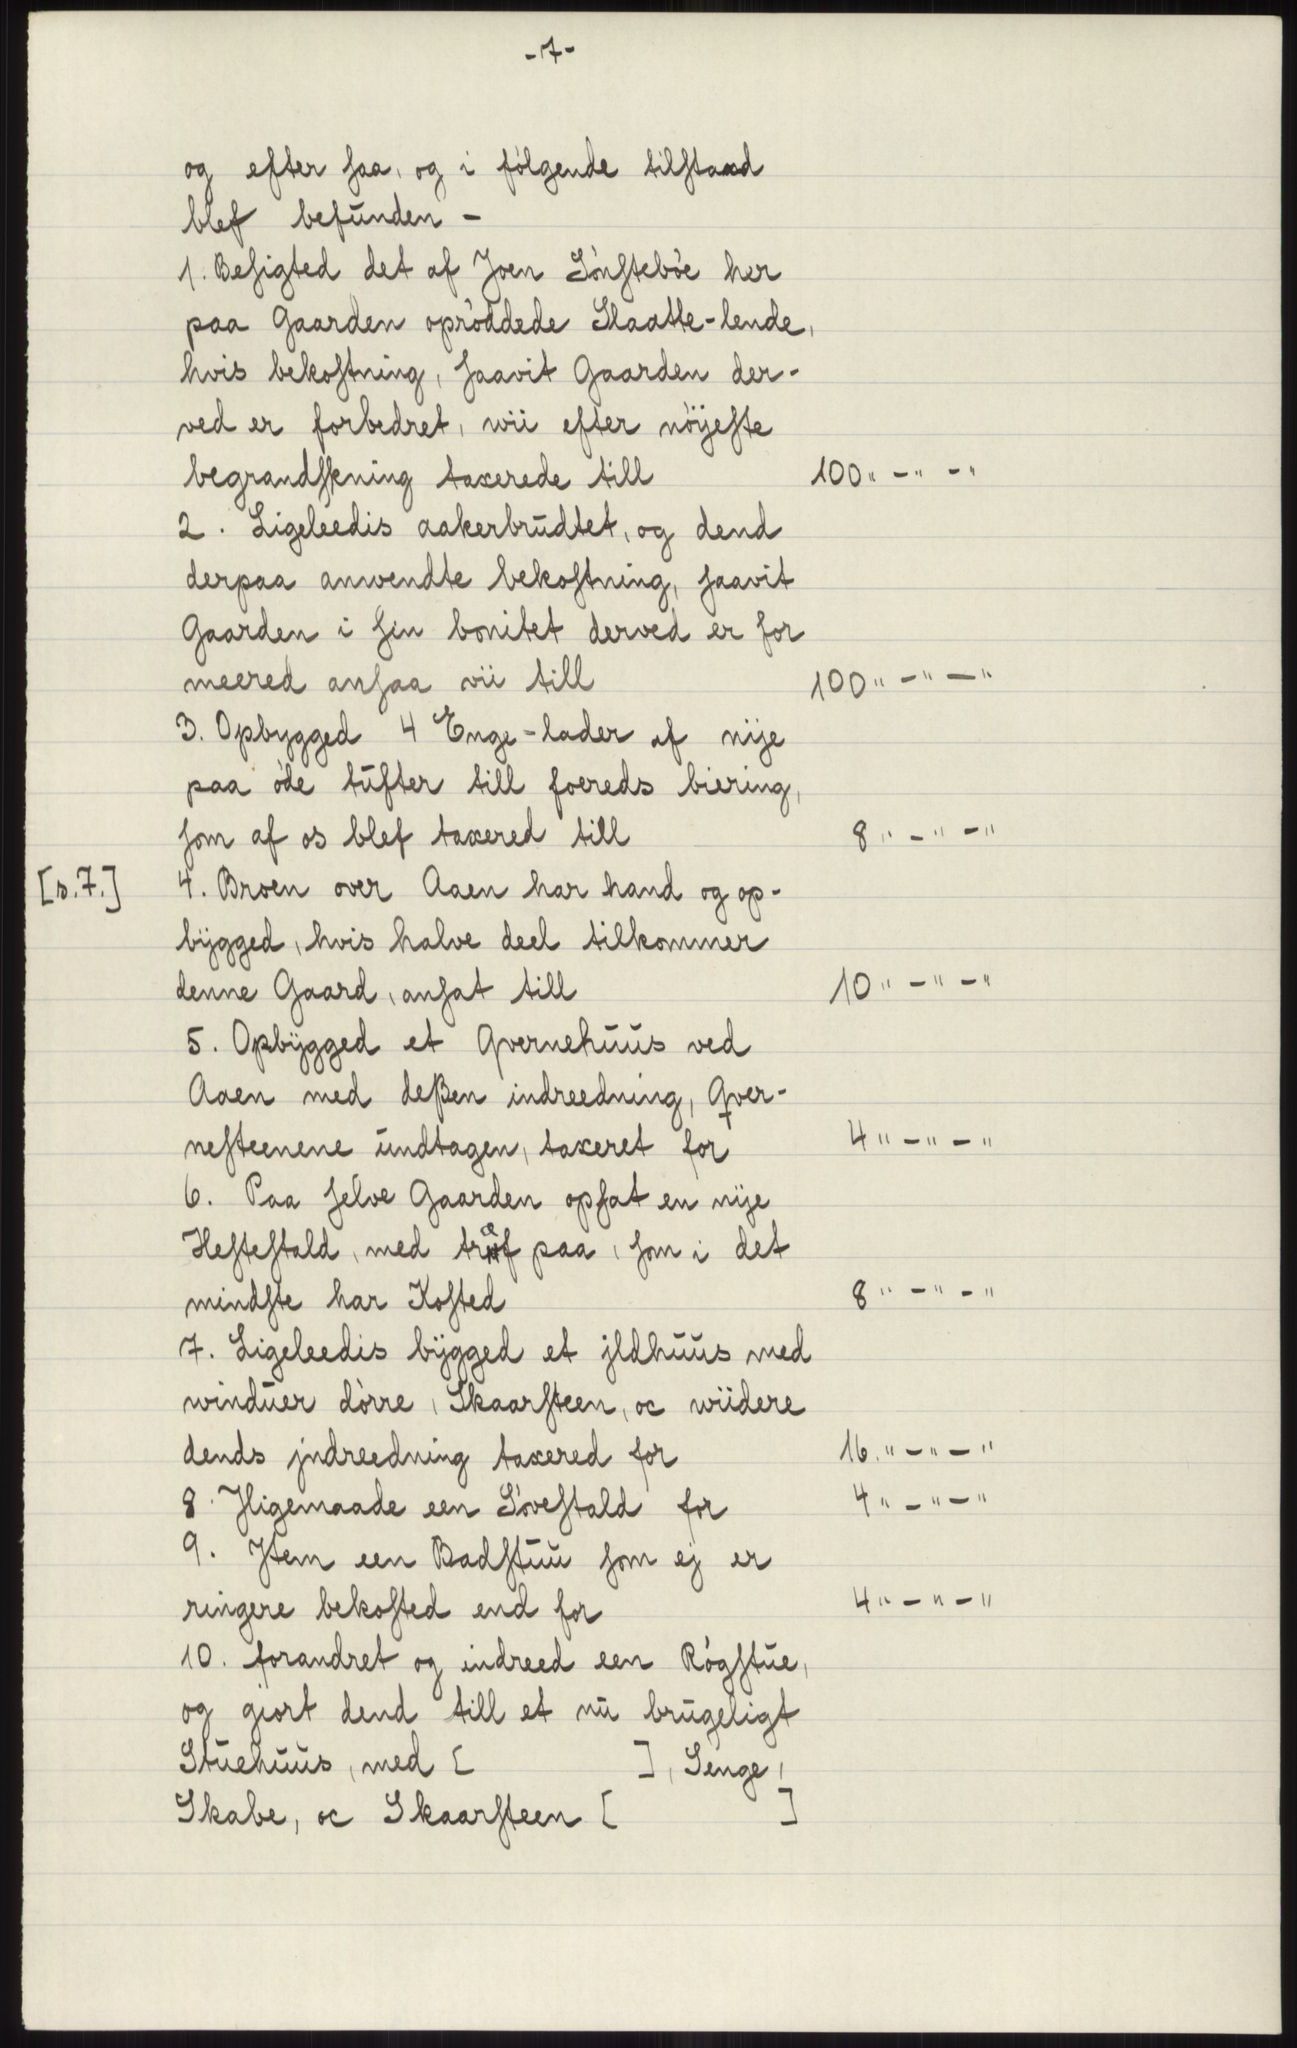 -7-
og efter saa, og i følgende tilstand
blef befunden -
1. Besigted det af Joen Sønstebøe her
paa Gaarden oprøddede Slaatte-lende,
hvis bekostning, saavit Gaarden der-
ved er forbedret, wii efter nøyeste
begrandskning taxerede till 100" -" -"
2. Ligeleedis aakerbrudtet, og dend
derpaa anwendte bekostning, saavit
Gaarden i sin bonitet derved er for
meered ansaa vii till 100" -" -"
3. Opbygged 4 Enge-lader af nije
paa øde tufter till foereds biering,
som af os blef taxered till 8" -" -"
[s.7.] 4. Broen over Aaen har hand og op-
bÿgged, hvis halve deel tilkommer
denne Gaard, ansat till 10" -" -"
5. Opbÿgged et Qvernehuus ved
Aaen med deßen indreedning, Qver-
nesteenene undtagen, taxeret for 4" -" -"
6. Paa selve Gaarden opsat en nije
Hestestald, med træf paa, som i det
mindste har Kosted 8" -" -"
7. Ligeleedis bÿgged et jldhuus med
winduer dørre, Skaarsteen, oc wiidere
dends jndreedning taxered for 16." -" -"
8. Jligemaade een Søvestald for 4" -" -"
9. Jtem een Badstuu som ej er
ringere bekosted end for 4" -" -"
10. forandret og indreed een Røgstue,
og giort dend till et nu brugeligt
Stuehuus, med [ ], Senge,
Skabe, oc Skaarsteen [ ]